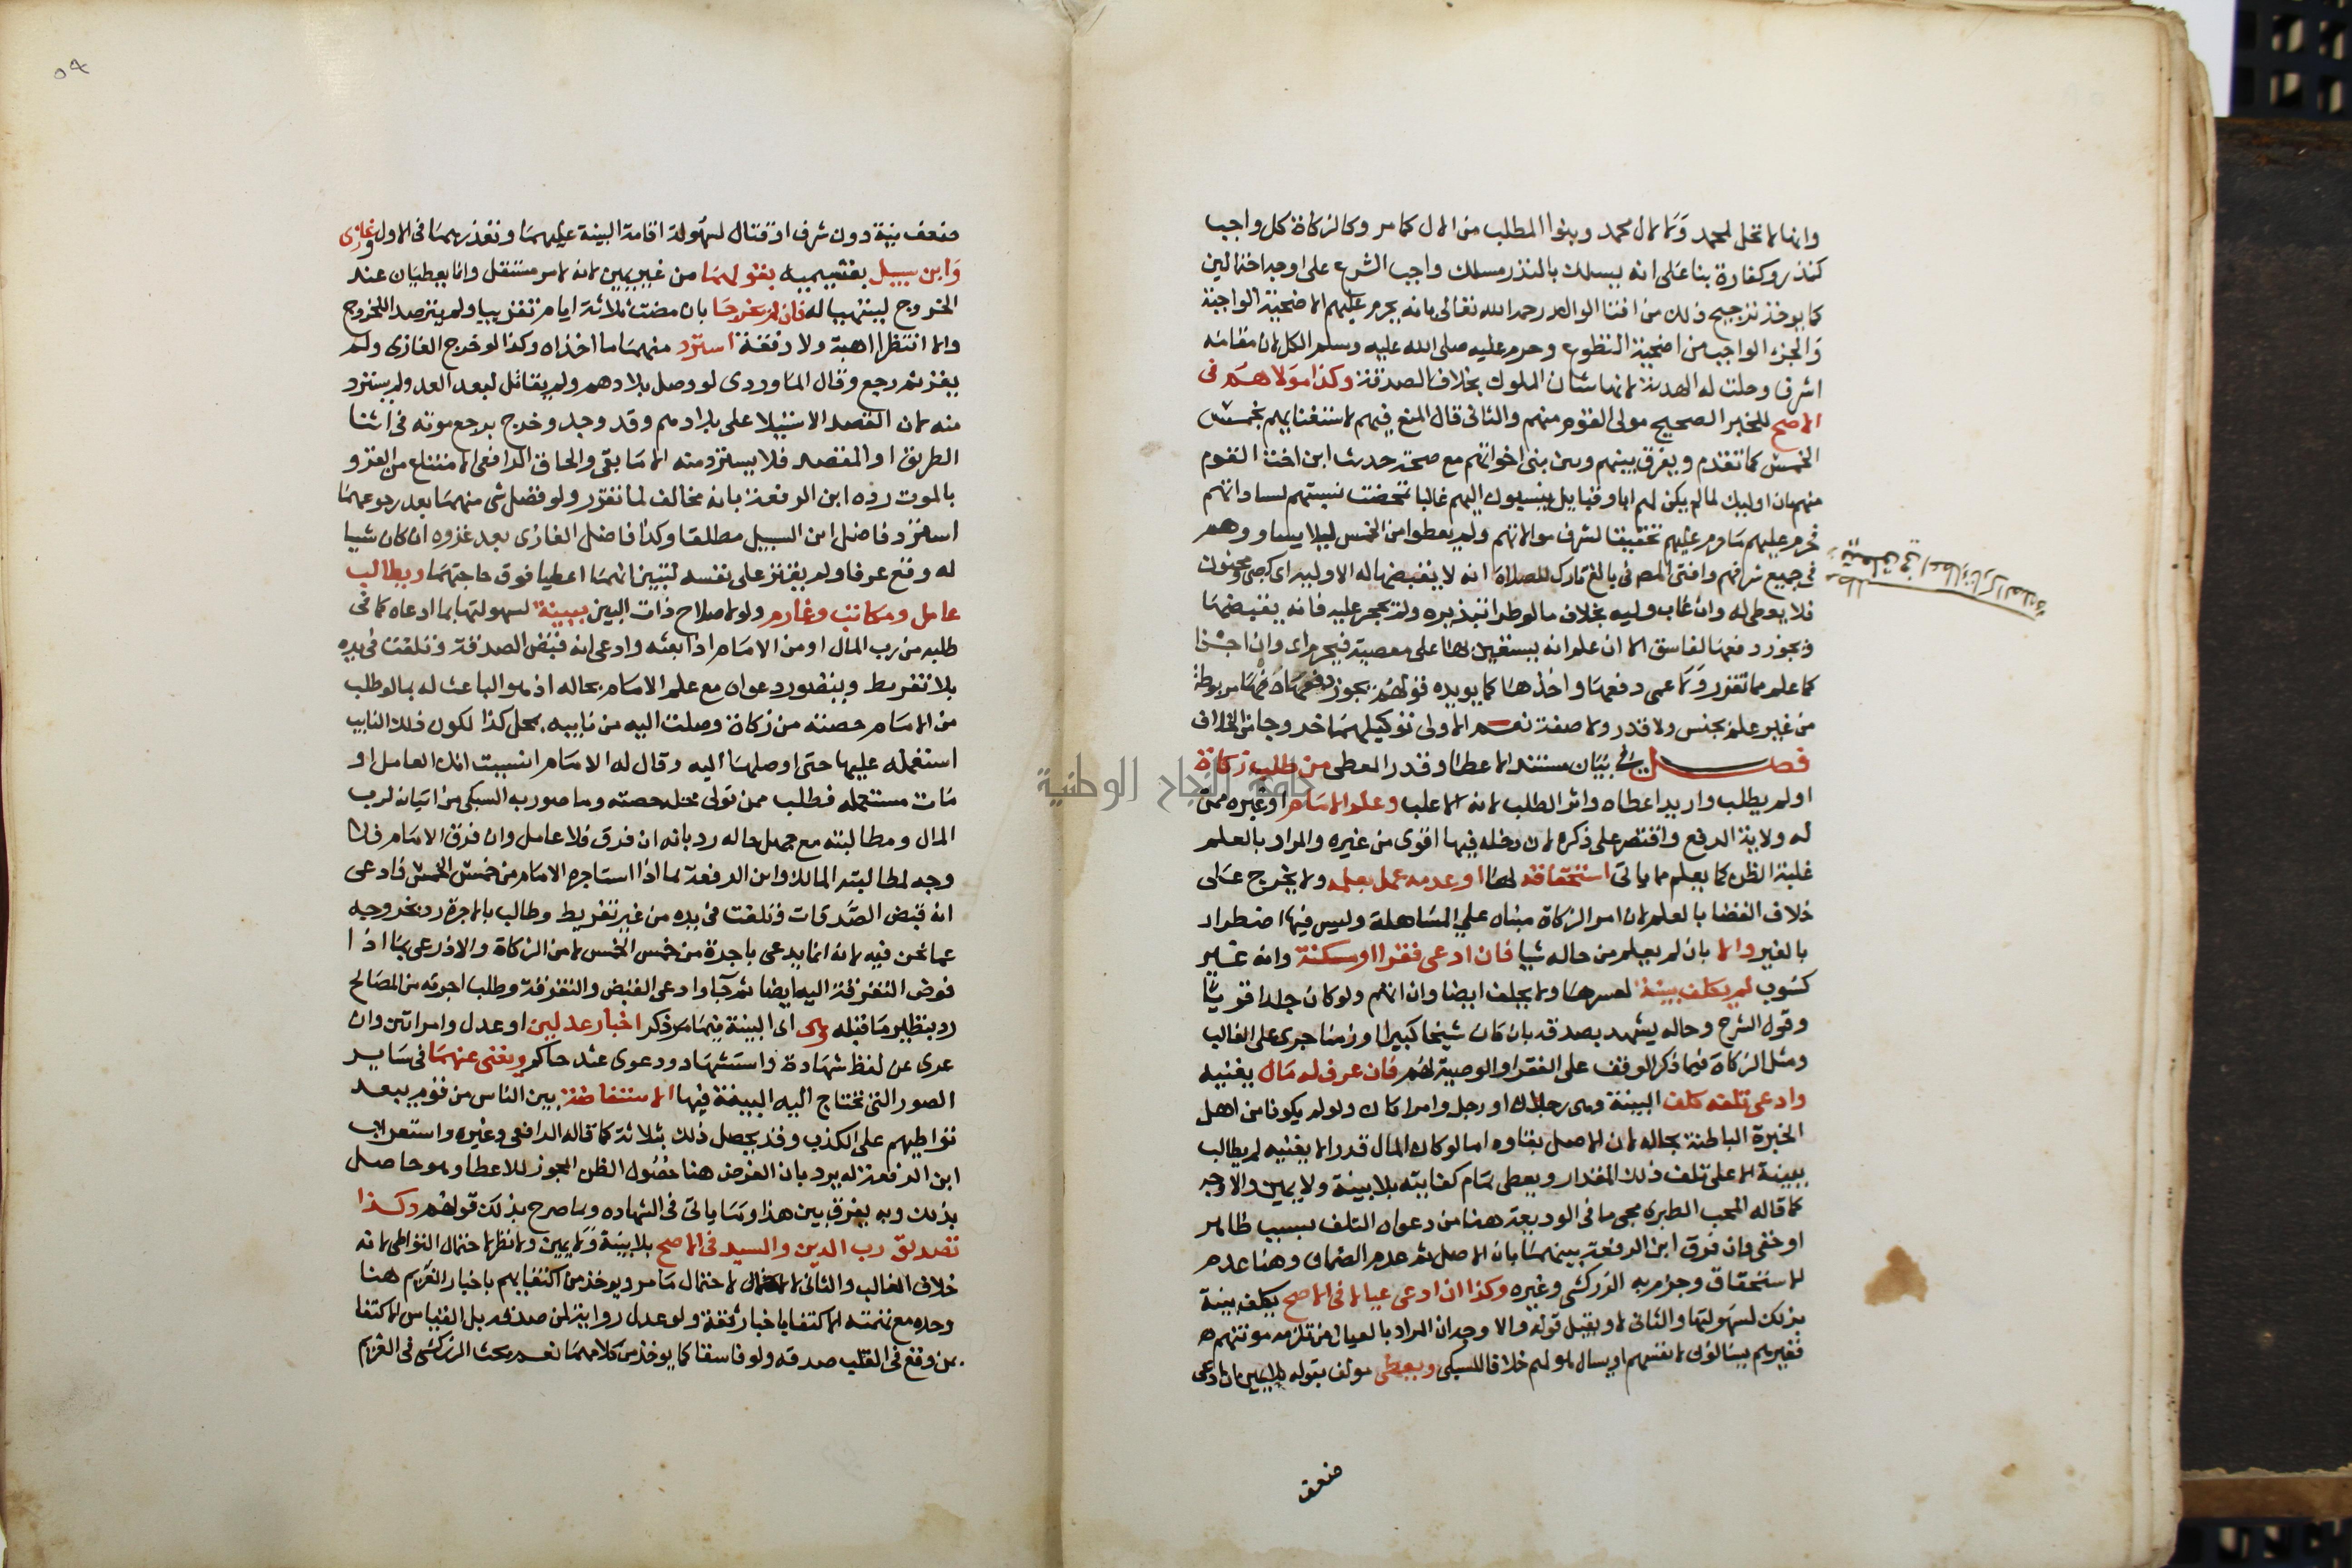 وانها لا تحل لمحمد ولا لال محمد وبنوا المطلب من الال كما مر وكالزكاة كل واجب
كنذر وكفارة بنا على انه يسلك بالنذر مسلك واجب الشرع على اوجه احتمالين
كما يوخذ ترجيح ذلك من افتا الوالد رحمه الله تعالى بانه يحرم عليهم الاضحية الواجبة
والجزء الواجب من اضحية التطوع وحرم عليه صلى الله عليه وسلم الكل لان مقامه
اشرف وحلت له الهدية لانها شان الملوك بخلاف الصدقة وكذا مولاهم في
الاصح للخبر الصحيح مولى القوم منهم والثاني قال المنع فيهم لاستغنايهم بخمس
الخمس كما تقدم ويفرق بينهم وبين بني اخواتهم مع صحة حديث ابن اخت القوم
منهم بان اوليك لما لم يكن لهم ابا وقبايل ينسبون اليهم غالبا تمحضت نسبتهم لساداتهم
فحرم عليهم ما حرم عليهم تحقيقا لشرف موالاتهم ولم يعطوا من الخمس ليلا يساووهم
في جميع شرفهم وافتى المص في بالغ تارك للصلاة انه لا يقبضها له الا وليه اي كصبي ومجنون
فلا يعطى له وان غاب وليه بخلاف ما لو طرا تبذيره ولم يحجر عليه فانه يقبضها
ويجوز دفعها لفاسق الا ان علم انه يستعين بها على معصية فيحرم اي وان اجزا
كما علم مما تقرر ولاعمى دفعها واخذها كما يويده قولهم يجوز دفعها مربوطة
من غير علم بجنس ولا قدر ولا صفة نعم الاولى توكيلهما خروجا من الخلاف
فصل في بيان مستند الاعطا وقدر المعطى من طلب زكاة
او لم يطلب واريد اعطاه واثر الطلب لانه الاغلب وعلم الامام او غيره ممن
له ولاية الدفع واقتصر على ذكره لان دخله فيها اقوى من غيره والمراد بالعلم
غلبة الظن كما يعلم مما ياتي استحقاقه لها او عدمه عمل بعلمه ولا يخرج على
خلاف القضا بالعلم لان امر الزكاة مبناه على المساهلة وليس فيها اضطرار
بالغير والا بان لم يعلم من حاله شيا فان ادعى فقرا او مسكنة وانه غير
كسوب لم يكلف بينة لعسرها ولا يحلف ايضا وان اتهم ولو كان جلدا قويا
وقول الشرح وحاله يشهد بصدقه بان كان شيخا كبيرا او زمنا جرى على الغالب
ومثل الزكاة فيما ذكر الوقف على الفقرا والوصية لهم فان عرف له مال يغنيه
وادعى تلفه كلف البينة وهي رجلان او رجل وامراتان ولو لم يكونا من اهل
الخبرة الباطنة بحاله لان الاصل بقاوه اما لو كان المال قدرا لا يغنيه لم يطالب
ببينة الا على تلف ذلك المقدار ويعطى تمام كفايته بلا بينة ولا يمين والاوجه
كما قاله المحب الطبري مجي ما في الوديعة هنا من دعواه التلف بسبب ظاهر
او خفي وان فرق ابن الرفعة بينهما بان الاصل ثم عدم الضمان وهنا عدم
الاستحقاق وجزم به الزركشي وغيره وكذا ان ادعى عيالا في الاصح يكلف بينة
بذلك لسهولتها والثاني لا ويقبل قوله والاوجه ان المراد بالعيال من تلزمه مونتهم
فغيرهم يسالون لانفسهم او يسال هو لهم خلافا للسبكي ويعطى مولف بقوله بلا يمين ان ادعى
ضعف
مطلب يتعلق في اعطاء تارك الصلاة
٥٩
ضعف نية دون شرف او قتال لسهولة اقامة البينة عليهما وتعذرها في الاول وغازي
وابن سبيل بقسيميه بقولهما من غير يمين لانه لامر مستقبل وانما يعطيان عند
الخروج ليتهيا له فان لم يخرجا بان مضت ثلاثة ايام تقريبا ولم يترصد اللخروج
ولا انتظرا اهبة ولا رفقة استرد منهما ما اخذاه وكذا لو خرج الغازي ولم
يغز ثم رجع وقال الماوردي لو وصل بلادهم ولم يقاتل لبعد العدو لم يسترد
منه لان القصد الاستيلا على بلادهم وقد وجد وخرج برجع موته في اثنا
الطريق او المقصد فلا يسترد منه الا ما بقي والحاق الرافعي الامتناع من الغزو
بالموت رده ابن الرفعة بانه مخالف لما تقرر ولو فضل شي منهما بعد رجوعهما
استرد فاضل ابن السبيل مطلقا وكذا فاضل الغازي بعد غزوه ان كان شيا
له وقع عرفا ولم يقتر على نفسه لتبين انهما اعطيا فوق حاجتهما ويطالب
عامل ومكاتب وغارم ولو لاصلاح ذات البين ببينة لسهولتها بما ادعاه كما في
طلبه من رب المال او من الامام اذا بعثه وادعى انه قبض الصدقة وتلفت في يده
بلا تفريط ويتصور دعواه مع علم الامام بحاله اذ هو الباعث له بما لو طلب
من الامام حصته من زكاة وصلت اليه من نايبه بمحل كذا لكون ذلك النايب
استعمله عليها حتى اوصلها اليه وقال له الامام انسيت انك العامل او
مات مستعمله فطلب ممن تولى محله حصته وما صور به السبكي من اتيانه لرب
المال ومطالبته مع جهل حاله رد بانه ان فرق فلا عامل وان فرق الامام فلا
وجه لمطالبته المالك وابن الرفعة بما اذا استاجره الامام من خمس الخمس فادعى
انه قبض الصدقات وتلفت في يده من غير تفريط وطالب بالاجرة رد بخروجه
عما نحن فيه لانه انما يدعي باجرة من خمس الخمس لا من الزكاة والاذرعي بما اذا
فوض التفرقة اليه ايضا ثم جا وادعى القبض والتفرقة وطلب اجرته من المصالح
رد بنظير ما قبله وهي اي البينة فيها مر ذكر اخبار عدلين او عدل وامراتين وان
عرى عن لفظ شهادة واستشهاد ودعوى عند حاكم ويغني عنهما في ساير
الصور التي تحتاج اليه البينة فيها الاستفاضة بين الناس من قوم يبعد
تواطيهم على الكذب وقد يحصل ذلك بثلاثة كما قاله الرافعي وغيره واستغراب
ابن الرفعة له يرد بان الغرض هنا حصول الظن المجوز للاعطا وهو حاصل
بذلك وبه يفرق بين هذا وما ياتي في الشهاده ومما صرح بذلك قولهم وكذا
تصديق رب الدين والسيد في الاصح بلا بينة ولا يمين ولا نظر لاحتمال التواطي لانه
خلاف الغالب والثاني لا لاحتمال ما مر ويوخذ من اكتفايهم باخبار الغريم هنا
وحده مع تهمته الاكتفا باخبار ثقة ولو عدل رواية ظن صدقه بل القياس الاكتفا
بمن وقع في القلب صدقه ولو فاسقا كما يوخذ من كلامهما نعم بحث الزركشي في الغريم